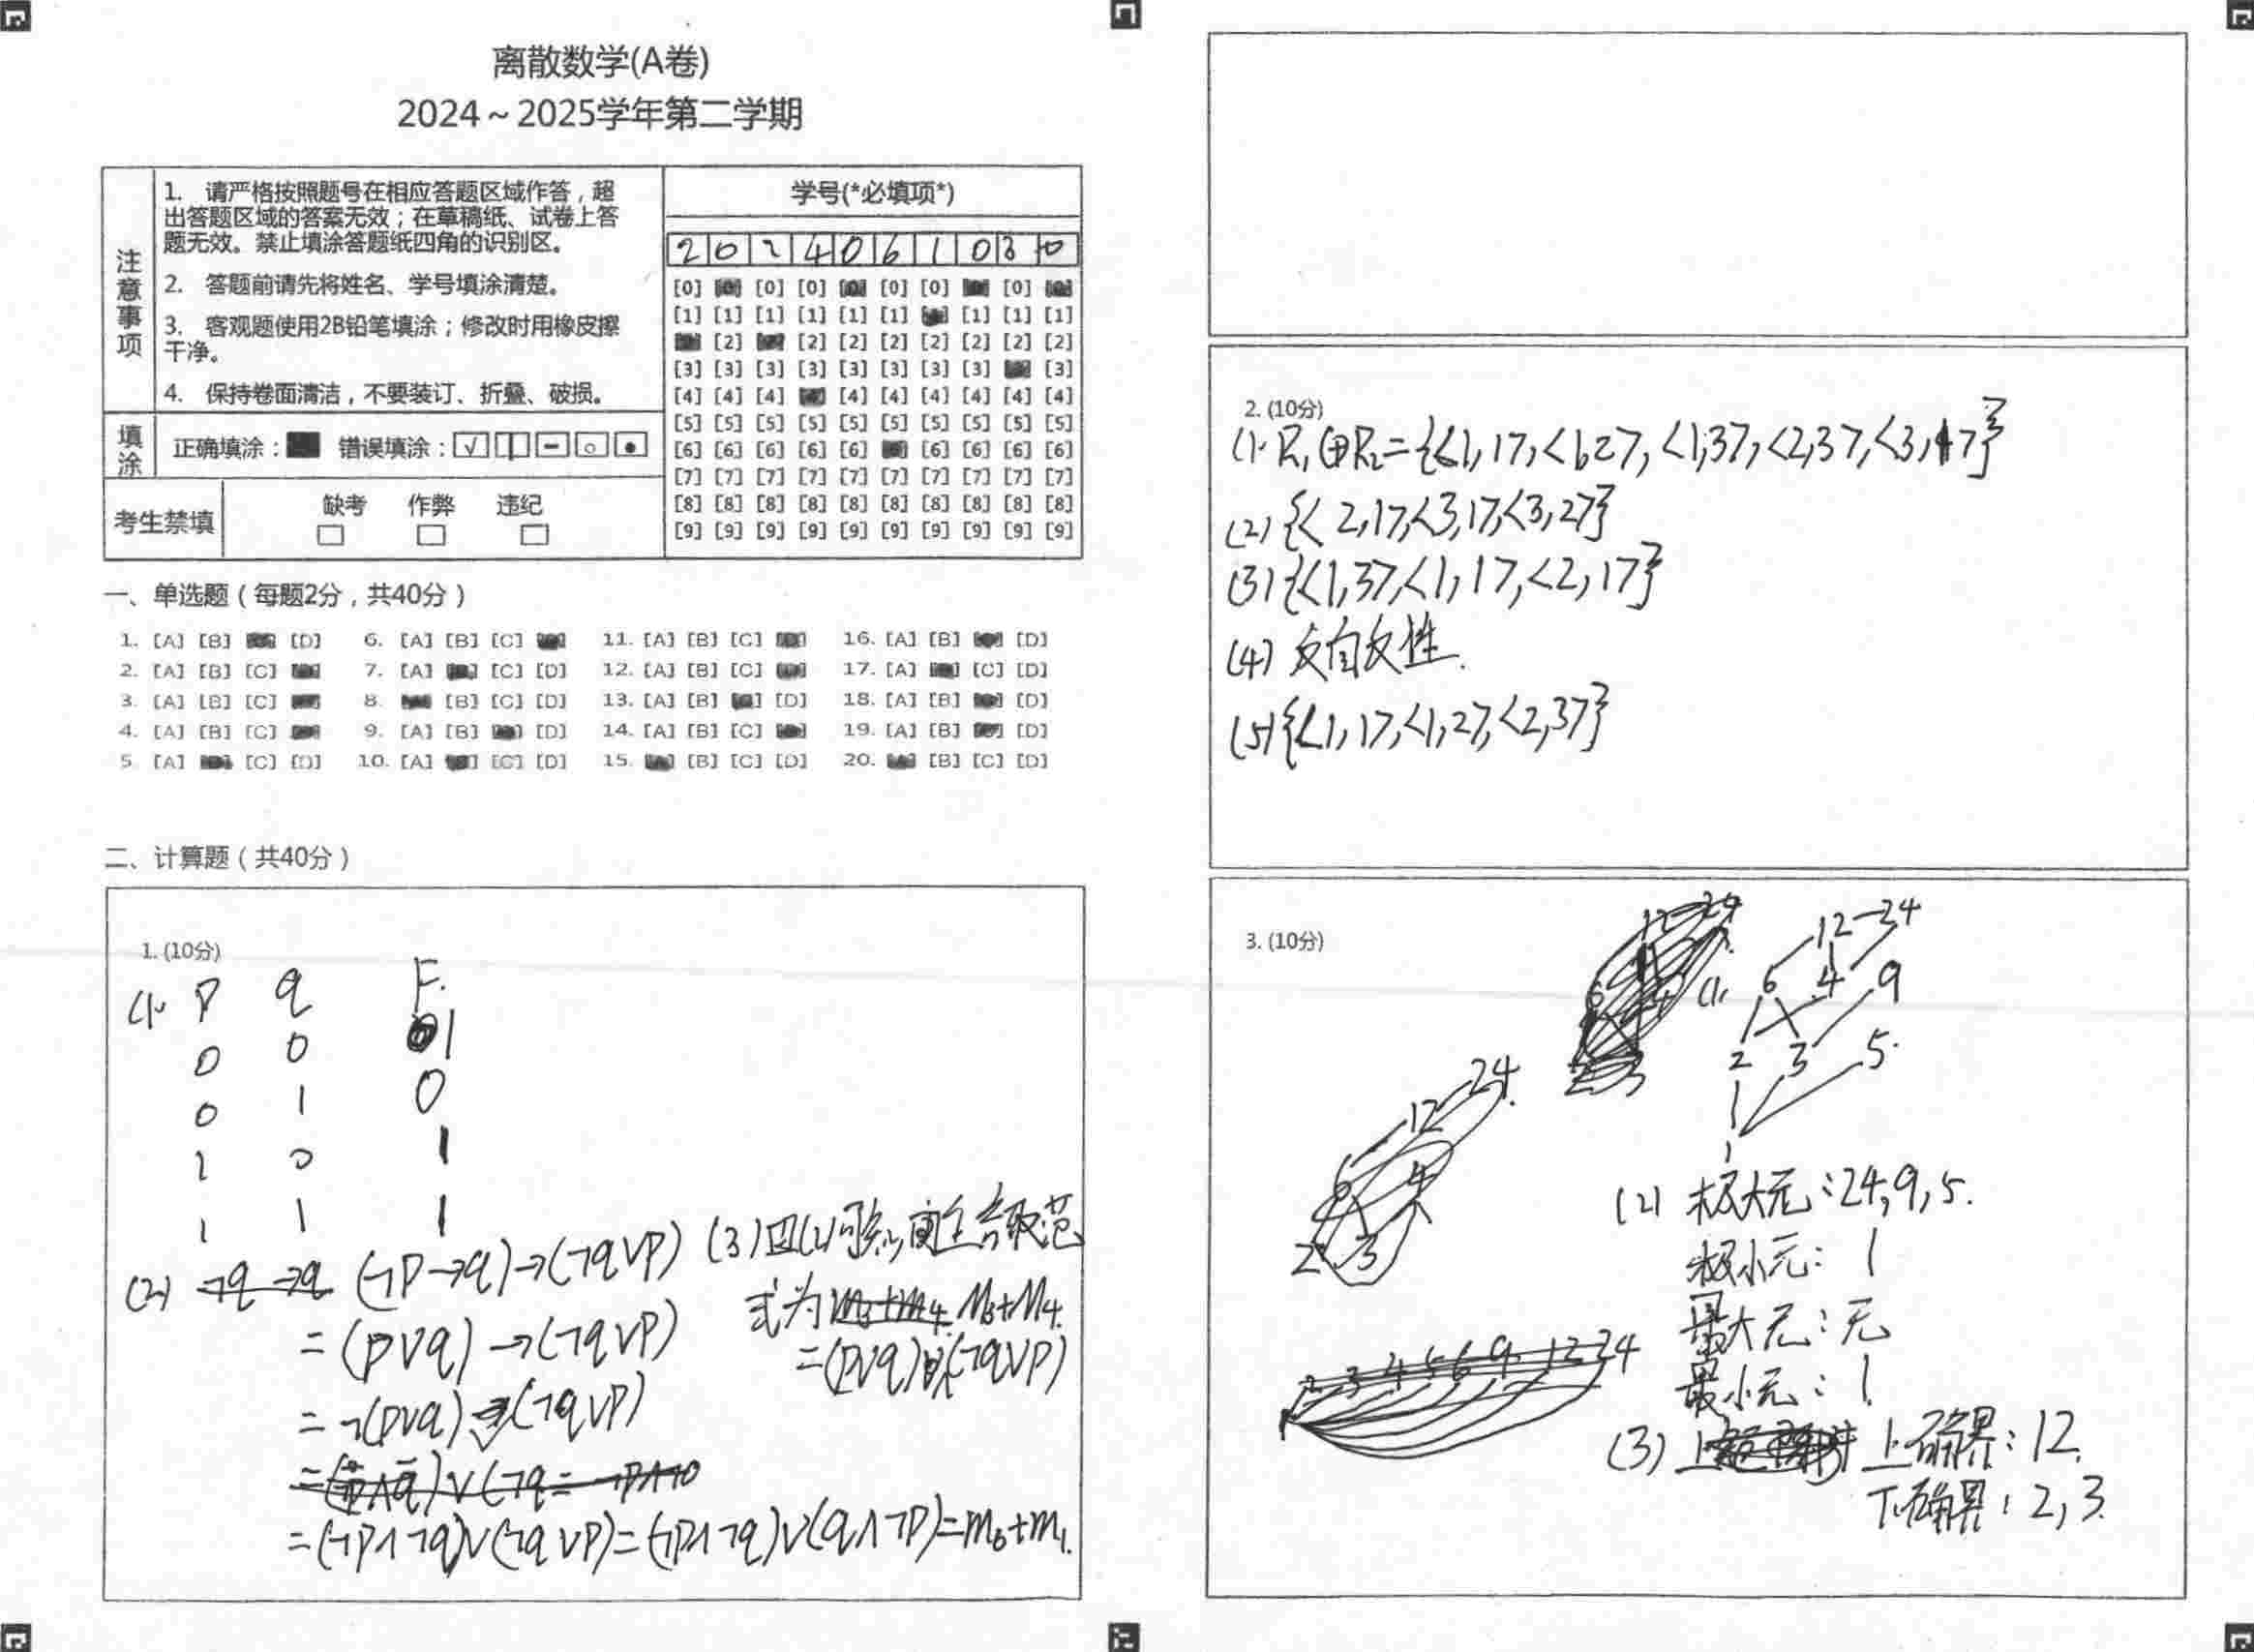 离散数学(A卷)
2024～2025学年第二学期
注意事项
1. 请严格按照题号在相应答题区域作答，超
出答题区域的答案无效；在草稿纸、试卷上答
题无效。禁止填涂答题纸四角的识别区。
2. 答题前请先将姓名、学号填涂清楚。
3. 客观题使用2B铅笔填涂；修改时用橡皮擦
干净。
4. 保持卷面清洁，不要装订、折叠、破损。
填涂
正确填涂： 错误填涂：
考生禁填
缺考 作弊 违纪
学号(*必填项*)
2 0 2 4 0 6 1 0 3 0
[0] [0] [0] [0] [0] [0] [0]
[1] [1] [1] [1] [1] [1] [1] [1] [1]
[2] [2] [2] [2] [2] [2] [2] [2]
[3] [3] [3] [3] [3] [3] [3] [3] [3]
[4] [4] [4] [4] [4] [4] [4] [4] [4]
[5] [5] [5] [5] [5] [5] [5] [5] [5] [5]
[6] [6] [6] [6] [6] [6] [6] [6] [6]
[7] [7] [7] [7] [7] [7] [7] [7] [7] [7]
[8] [8] [8] [8] [8] [8] [8] [8] [8] [8]
[9] [9] [9] [9] [9] [9] [9] [9] [9] [9]
一、单选题（每题2分，共40分）
1. [A] [B] [D] 6. [A] [B] [C] 11. [A] [B] [C] 16. [A] [B] [D]
2. [A] [B] [C] 7. [A] [C] [D] 12. [A] [B] [C] 17. [A] [C] [D]
3. [A] [B] [C] 8. [B] [C] [D] 13. [A] [B] [D] 18. [A] [B] [D]
4. [A] [B] [C] 9. [A] [B] [D] 14. [A] [B] [C] 19. [A] [B] [D]
5. [A] [C] [D] 10. [A] [C] [D] 15. [B] [C] [D] 20. [B] [C] [D]
二、计算题（共40分）
1. (10分)
(1) P q F.
0 0 1
0 1 0
1 0 1
1 1 1
(2) (¬P→q)→(¬q∨P)
=(P∨q)→(¬q∨P)
=¬(P∨q)∨(¬q∨P)
=(¬P∧¬q)∨(¬q∨P)=(¬P∧¬q)∨(q∧¬P)=m0+m1.
(3)由(2)可知,主合取范
式为 M3+M4.
=(P∨q)∧(¬q∨P)
2. (10分)
(1) R₁⊕R₂={<1,1>,<1,2>,<1,3>,<2,3>,<3,1>}
(2) {<2,1>,<3,1>,<3,2>}
(3) {<1,3>,<1,1>,<2,1>}
(4) 反自反性.
(5) {<1,1>,<1,2>,<2,3>}
3. (10分)
(1)
12 24
6 4 9
2 3 5.
1
24
12
6 4
2 3
2 3 4 5 6 9 12 24
(2) 极大元:24,9,5.
极小元: 1
最大元:无
最小元: 1
(3) 上确界: 12.
下确界: 2,3.